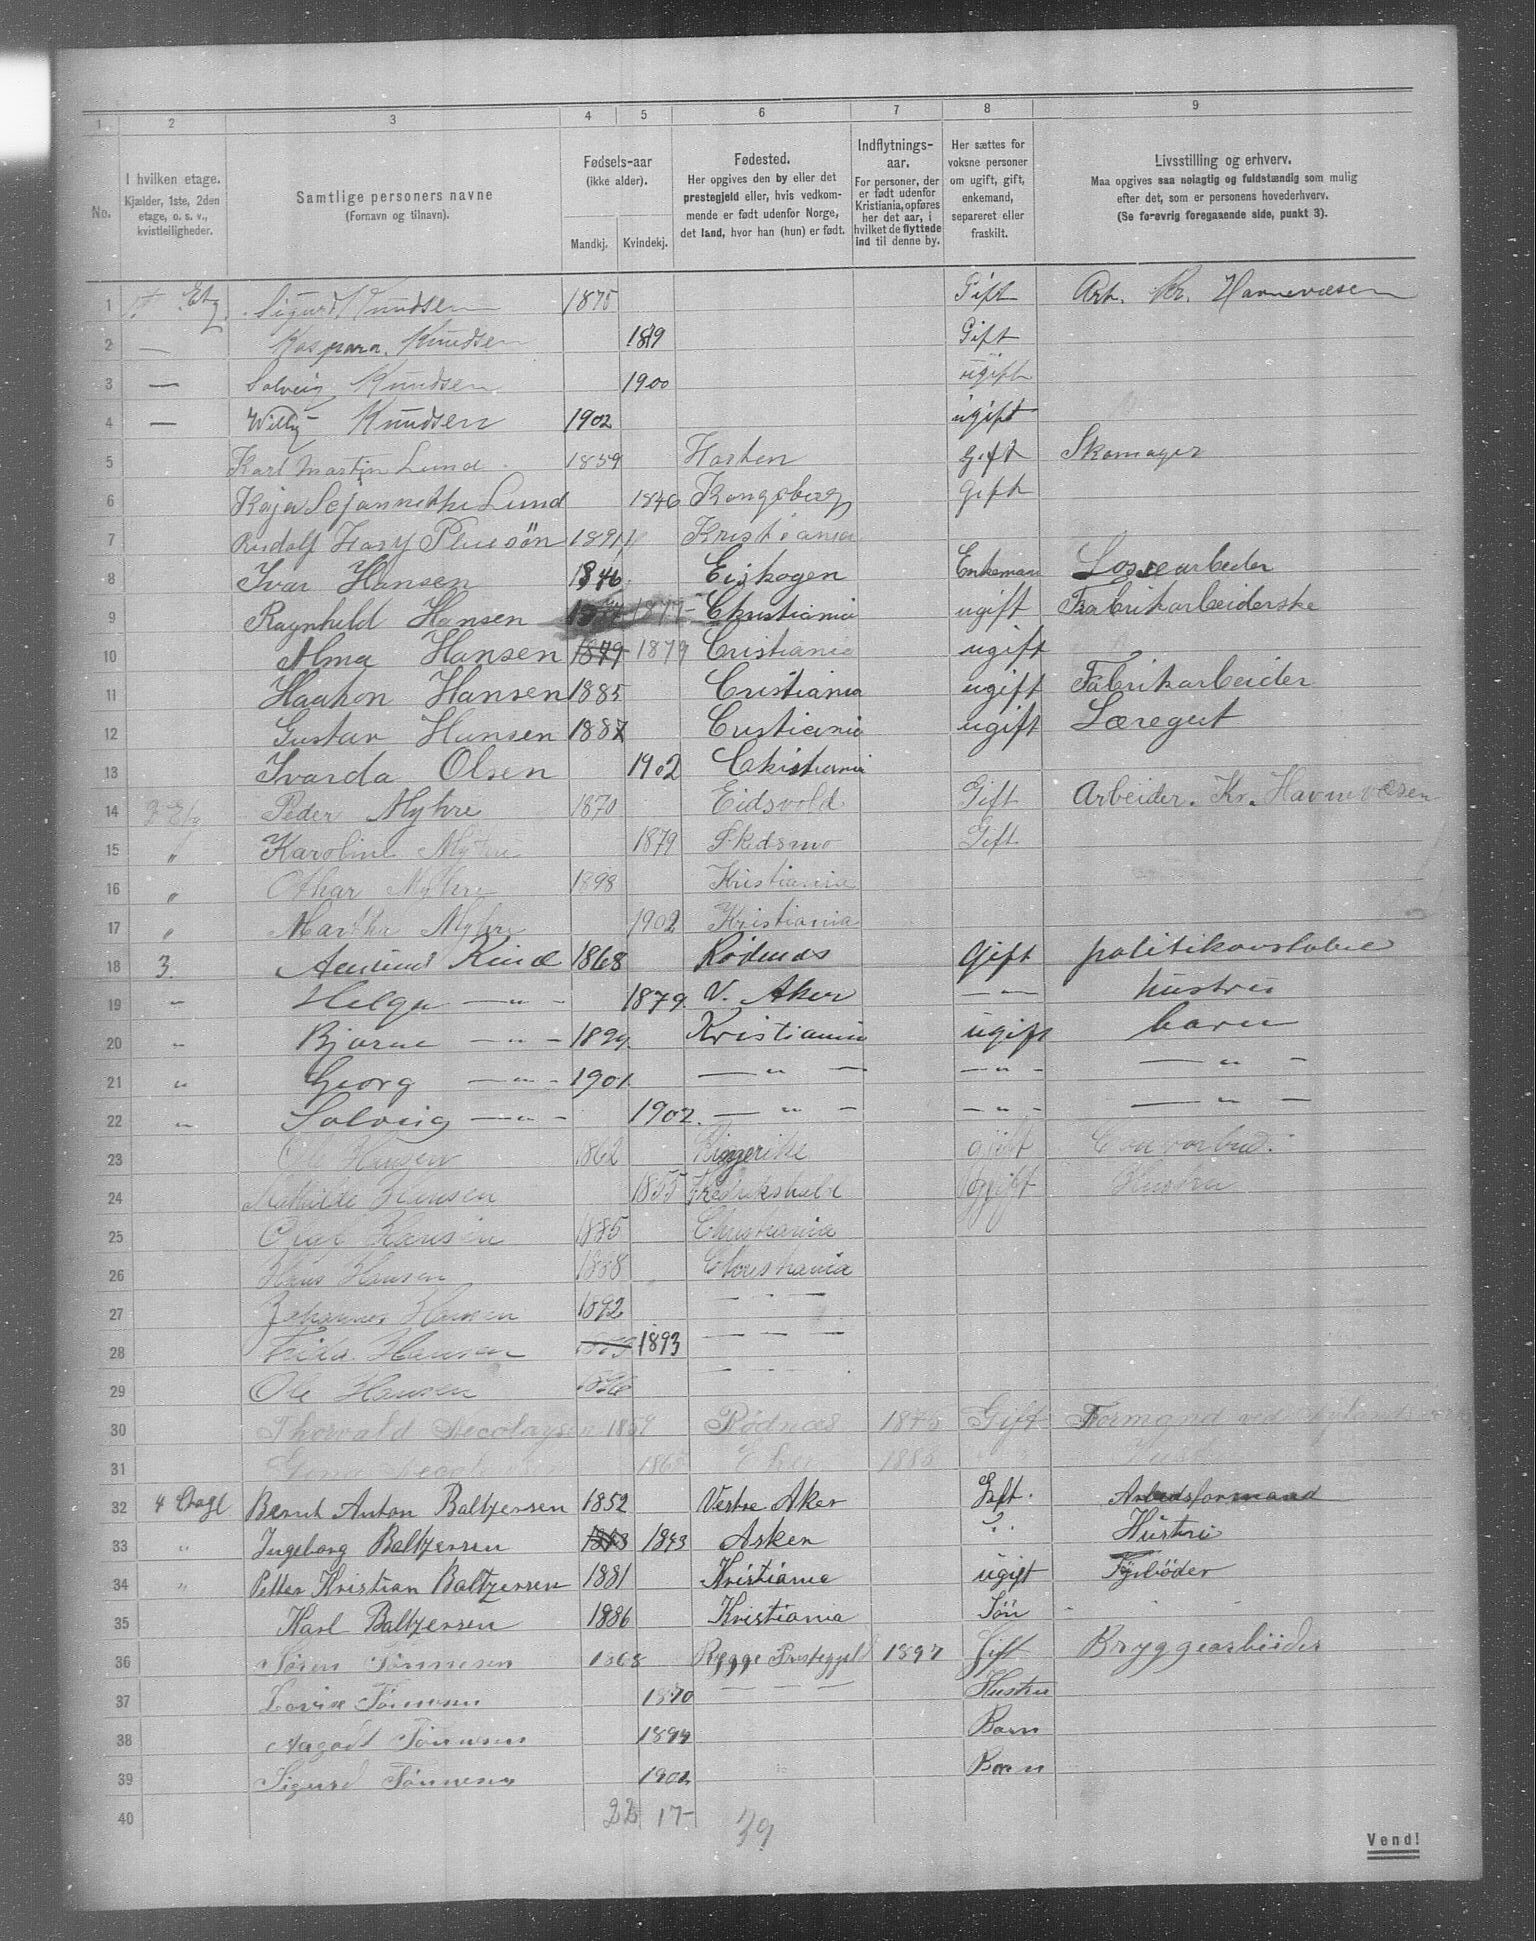 1 2 3 4 5 6 7 8 9
No.
I hvilken etage. Kjælder, 1ste, 2den etage, o. s. v., kvistleiligheder.
Samtlige personers navne (Fornavn og tilnavn).
Fødsels-aar (ikke alder). Mandkj. Kvindekj.
Fødested. Her opgives den by eller det prestegjeld eller, hvis vedkommende er født udenfor Norge, det land, hvor han (hun) er født.
Indflytnings-aar. For personer, der er født udenfor Kristiania, opføres her det aar, i hvilket de flyttede ind til denne by.
Her sættes for voksne personer om ugift, gift, enkemand, separeret eller fraskilt.
Livsstilling og erhverv. Maa opgives saa nøiagtig og fuldstændig som mulig efter det, som er personens hovederhverv. (Se forøvrig foregaaende side, punkt 3).
1 Etg. Sigurd Knudsen 1875 Gift Arb. Kr. Havnevæsen
2 — Kaspara Knudsen 1879 Gift
3 — Solveig Knudsen 1900 ugift
4 — Willy Knudsen 1902 ugift
5 Karl Martin Lund 1859 Horten Gift Skomager
6 Kaja Lund 1846 Kongsberg Gift
7 Rudolf Hary 1891 Kristiania
8 Ivar Hansen 1846 Eiskogen Enkeman Lossearbeider
9 Ragnhild Hansen 1877 Christiania ugift Fabrikarbeiderske
10 Alma Hansen 1879 1879 Cristiania ugift
11 Haakon Hansen 1885 Cristiania ugift Fabrikarbeider
12 Gustav Hansen 1887 Cristiania ugift Læregut
13 Ivarda Olsen 1902 Christiania
14 2 Etg Peder Myhre 1870 Eidsvold Gift Arbeider. Kr. Havnevæsen
15 " Karoline Myhre 1879 Skedsmo Gift
16 " Othar Myhre 1898 Kristiania
17 " Martha Myhre 1902 Kristiania
18 3. Amund Kind 1868 Rødenæs Gift politikonstabel
19 " Helga — " — 1879. V. Aker — " — hustru
20 " Bjarne — " — 1899. Kristiania ugift barn
21 " Georg — " — 1901. — " — — " — — " —
22 " Solveig — " — 1902. — " — — " — — " —
23 Ole Hansen 1862 Ringerike gift
24 Mathilde Hansen 1855 Fredrikshald gift Hustru
25 Oluf Hansen 1885 Christiania
26 Hans Hansen 1888 Christiania
27 Johannes Hansen 1892 — — —
28 Frida Hansen 1893 — — —
29 Ole Hansen — — —
30 Thorvald Nicolaysen 1859 Rødnæs 1876 Gift Formand ved
31 Eker
32 4 Etage Bernt Anton Baltzersen 1852 Vestre Aker Gift. Arbeidsformand
33 " Ingeborg Baltzersen 1843 Asker Hustru
34 " Petter Kristian Baltzersen 1881 Kristiania ugift Fyrbøder
35 Karl Baltzersen 1886 Kristiania Søn
36 Søren Tønnesen 1868 Rygge Prestegjel 1897 Gift Bryggearbeider
37 Lovise Tønnesen 1870 — — — Hustru
38 Tønnesen 1899 Barn
39 Sigurd Tønnesen 1902 Barn
40 22 17 39
Vend!